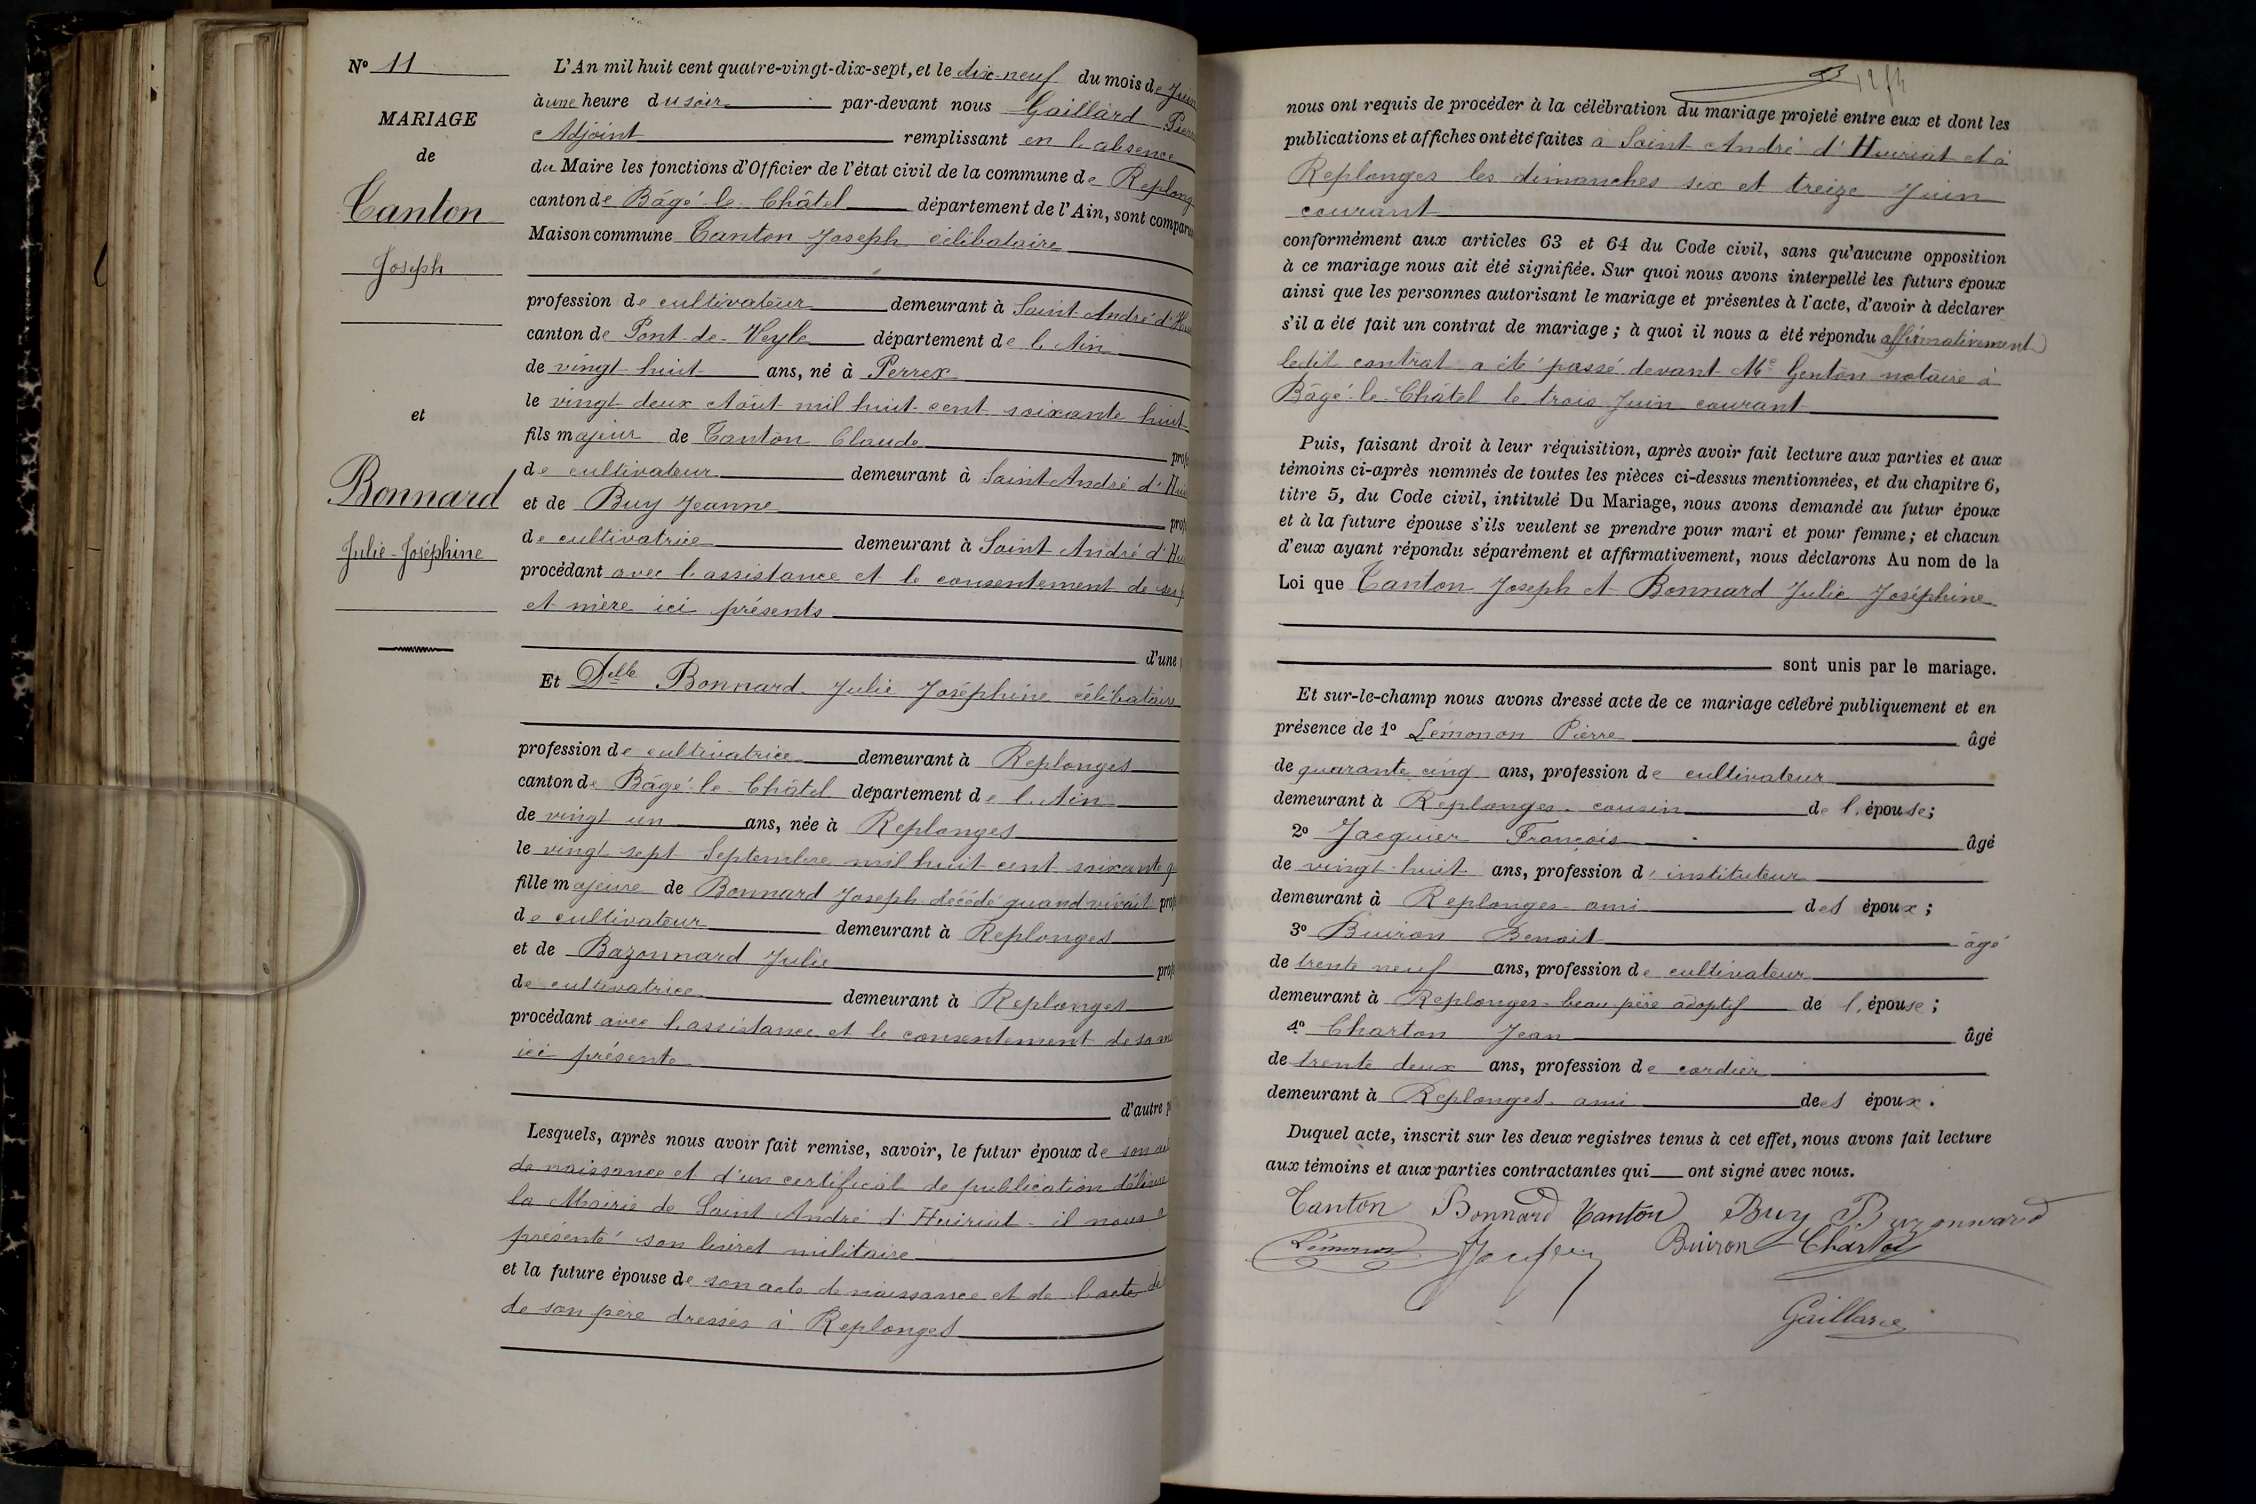 N° 11
MARIAGE
de
Canton
Joseph
et
Bonnard
Julie-Joséphine
L'An mil huit cent quatre-vingt-dix-sept, et le dix-neuf du mois de Juin
à une heure du soir par-devant nous Gaillard Pierre
Adjoint remplissant en l'absence
du Maire les fonctions d'Officier de l'état civil de la commune de Replong
canton de Bâgé-le-Châtel département de l'Ain, sont comparus
Maison commune Canton Joseph célibataire
profession de cultivateur demeurant à Saint-André d'Hui
canton de Pont-de-Veyle département de l'Ain
de vingt-huit ans, né à Perrex
le vingt deux Août mil huit cent soixante huit
fils majeur de Canton Claude prof
de cultivateur demeurant à Saint André d'Hui
et de Buy Jeanne prof
de cultivatrice demeurant à Saint André d'Hu
procédant avec l'assistance et le consentement de ses p
et mère ici présents
d'une
Et Delle Bonnard Julie Joséphine célibataire
profession de cultivatrice demeurant à Replonges
canton de Bâgé-le-Châtel département de l'Ain
de vingt un ans, née à Replonges
le vingt sept Septembre mil huit cent soixante q
fille majeure de Bonnard Joseph décédé quand vivait prof
de cultivateur demeurant à Replonges
et de Bazonnard Julie prof
de cultivatrice demeurant à Replonges
procédant avec l'assistance et le consentement de sa m
ici présente
d'autre p
Lesquels, après nous avoir fait remise, savoir, le futur époux de son a
de naissance et d'un certificat de publication délivré
la Mairie de Saint André d'Huiriat - il nous a
présenté son livret militaire
et la future épouse de son acte de naissance et de l'acte de
de son père dressés à Replonges
nous ont requis de procéder à la célébration du mariage projeté entre eux et dont les
publications et affiches ont été faites à Saint André d'Huiriat et à
Replonges les dimanches six et treize Juin
courant
conformément aux articles 63 et 64 du Code civil, sans qu'aucune opposition
à ce mariage nous ait été signifiée. Sur quoi nous avons interpellé les futurs époux
ainsi que les personnes autorisant le mariage et présentes à l'acte, d'avoir à déclarer
s'il a été fait un contrat de mariage ; à quoi il nous a été répondu affirmativement
ledit contrat a été passé devant Me Genton notaire à
Bâgé-le-Châtel le trois Juin courant
Puis, faisant droit à leur réquisition, après avoir fait lecture aux parties et aux
témoins ci-après nommés de toutes les pièces ci-dessus mentionnées, et du chapitre 6,
titre 5, du Code civil, intitulé Du Mariage, nous avons demandé au futur époux
et à la future épouse s'ils veulent se prendre pour mari et pour femme ; et chacun
d'eux ayant répondu séparément et affirmativement, nous déclarons Au nom de la
Loi que Canton Joseph et Bonnard Julie Joséphine
sont unis par le mariage.
Et sur-le-champ nous avons dressé acte de ce mariage célébré publiquement et en
présence de 1° Lémonon Pierre âgé
de quarante cinq ans, profession de cultivateur
demeurant à Replonges - cousin de l'épouse ;
2° Jacquier François âgé
de vingt-huit ans, profession d'instituteur
demeurant à Replonges ami des époux ;
3° Buiron Benoit âgé
de trente neuf ans, profession de cultivateur
demeurant à Replonges - beau-père adoptif de l'épouse ;
4° Charton Jean âgé
de trente deux ans, profession de cordier
demeurant à Replonges - ami des époux.
Duquel acte, inscrit sur les deux registres tenus à cet effet, nous avons fait lecture
aux témoins et aux parties contractantes qui ont signé avec nous.
Canton Bonnard Canton Buy Bazonnard
Lémonon Buiron Charton
Gaillard